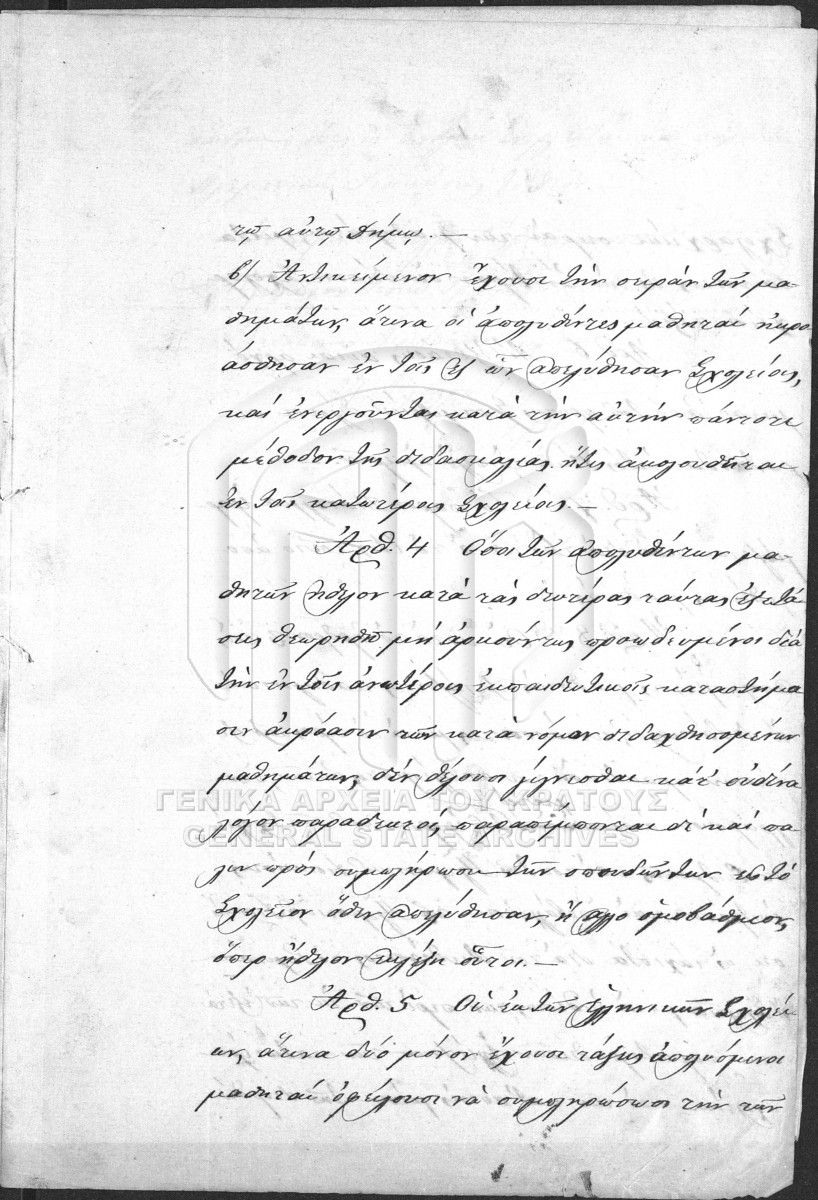 τῷ αὐτῷ Δήμῳ. —
β) Ἀντικείμενον ἔχουσι τὴν σειρὰν τῶν μα-
θημάτων, ἅτινα οἱ ἀπολυθέντες μαθηταὶ ἠκρο
άσθησαν ἐν τοῖς ἐξ ὧν ἀπελύθησαν Σχολείοις,
καὶ ἐνεργοῦνται κατὰ τὴν αὐτὴν πάντοτε
μέθοδον τῆς διδασκαλίας ἥτις ἀκολουθῆται
ἐν τοῖς κατωτέροις Σχολείοις. —
Ἀρθ. 4 Ὅσοι τῶν ἀπολυθέντων μα-
θητῶν ἤθελον κατὰ τὰς δευτέρας ταύτας ἐξετά
σεις θεωρηθῆ μὴ ἀρκούντως προωδευμένοι διὰ
τὴν ἐν τοῖς ἀνωτέροις ἐκπαιδευτικοῖς καταστήμα
σιν ἀκρόασιν τῶν κατὰ νόμον διδαχθησομένων
μαθημάτων, δὲν θέλουσι γίγνεσθαι κατ' οὐδένα
λόγον παραδεκτοί, παραπέμπονται δὲ καὶ πά
λιν πρὸς συμπλήρωσιν τῶν σπουδῶν των εἰς τὸ
Σχολεῖον ὅθεν ἀπελύθησαν, ἢ ἄλλο ὁμοβάθμιον,
ὅπερ ἤθελον ἐκλέξη οὗτοι. —
Ἀρθ. 5 Οἱ ἐκ τῶν Ἑλληνικῶν Σχολεί
ων, ἅτινα δύο μόνον ἔχουσι τάξεις ἀπολυόμενοι
μαθηταὶ ὀφείλουσι νὰ συμπληρώσωσι τὴν τῶν
ΓΕΝΙΚΑ ΑΡΧΕΙΑ ΤΟΥ ΚΡΑΤΟΥΣ
GENERAL STATE ARCHIVES